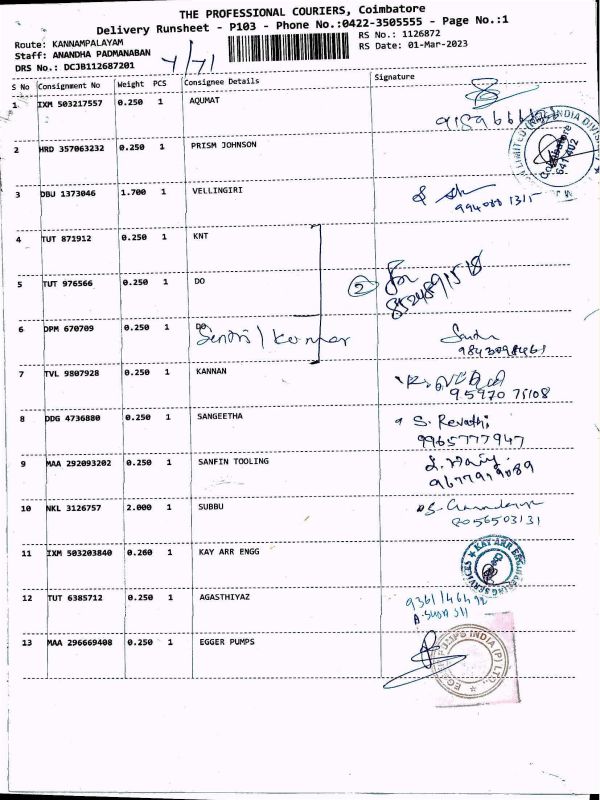 THE PROFESSIONAL COURIERS, Coimbatore
Delivery Runsheet - P103 - Phone No.:0422-3505555 - Page No.:1
Route: KANNAMPALAYAM
RS No.: 1126872
Staff: ANANDHA PADMANABAN
RS Date: 01-Mar-2023
DRS No.: DCJB112687201
S No Consignment No Weight PCS Consignee Details Signature
1 IXM 503217557 0.250 1 AQUMAT
2 HRD 357063232 0.250 1 PRISM JOHNSON
Coimbatore
641 402
3 DBU 1373046 1.700 1 VELLINGIRI
994088 1315
4 TUT 871912 0.250 1 KNT
5 TUT 976566 0.250 1 DO
2 for
6 DPM 670709 0.250 1 DO
9843098461
7 TVL 9807928 0.250 1 KANNAN
95970 75108
8 DDG 4736880 0.250 1 SANGEETHA
S. Revathi
9965777947
9 MAA 292093202 0.250 1 SANFIN TOOLING
9677979089
10 NKL 3126757 2.000 1 SUBBU
8056503131
11 IXM 503203840 0.260 1 KAY ARR ENGG
KAY ARR ENGINEERING SERVICES
12 TUT 6385712 0.250 1 AGASTHIYAZ
13 MAA 296669408 0.250 1 EGGER PUMPS
EGGER PUMPS INDIA (P) LTD.